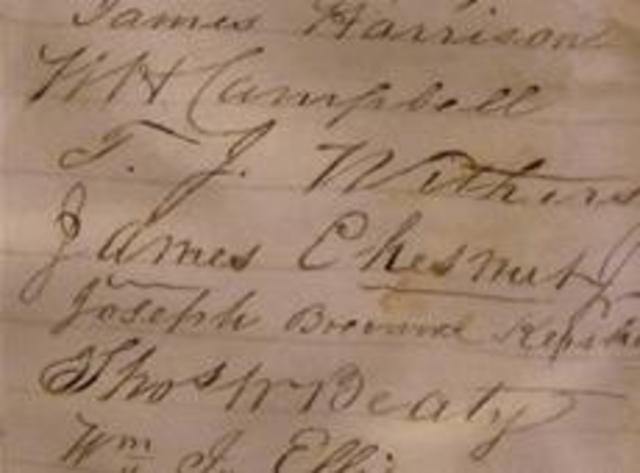 James Harrison
W H Campbell
T. J. Withers
James Chesnut J
Joseph Brevard Kersha
Thos W Beaty
Wm J. Elli